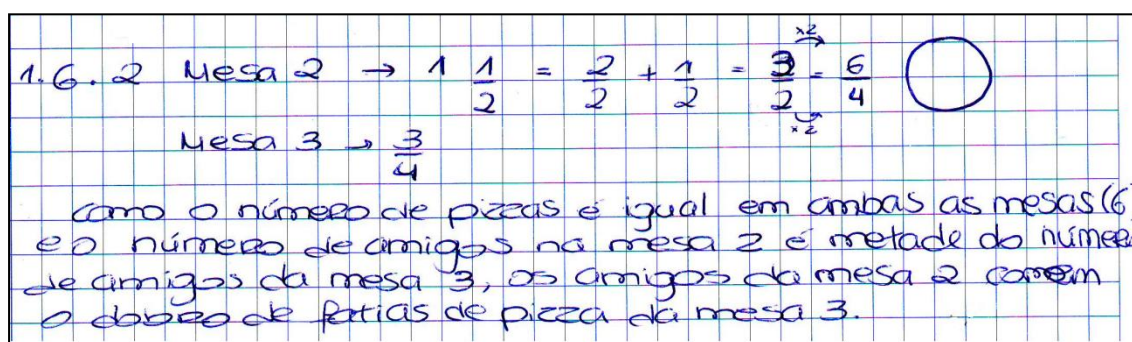 1.6.2 Mesa 2 → 1 1/2 = 2/2 + 1/2 = 3/2 = 6/4
×2
×2
Mesa 3 → 3/4
como o número de pizzas é igual em ambas as mesas (6
e o número de amigos na mesa 2 é metade do númer
de amigos da mesa 3, os amigos da mesa 2 comem
o dobro de fatias de pizza da mesa 3.